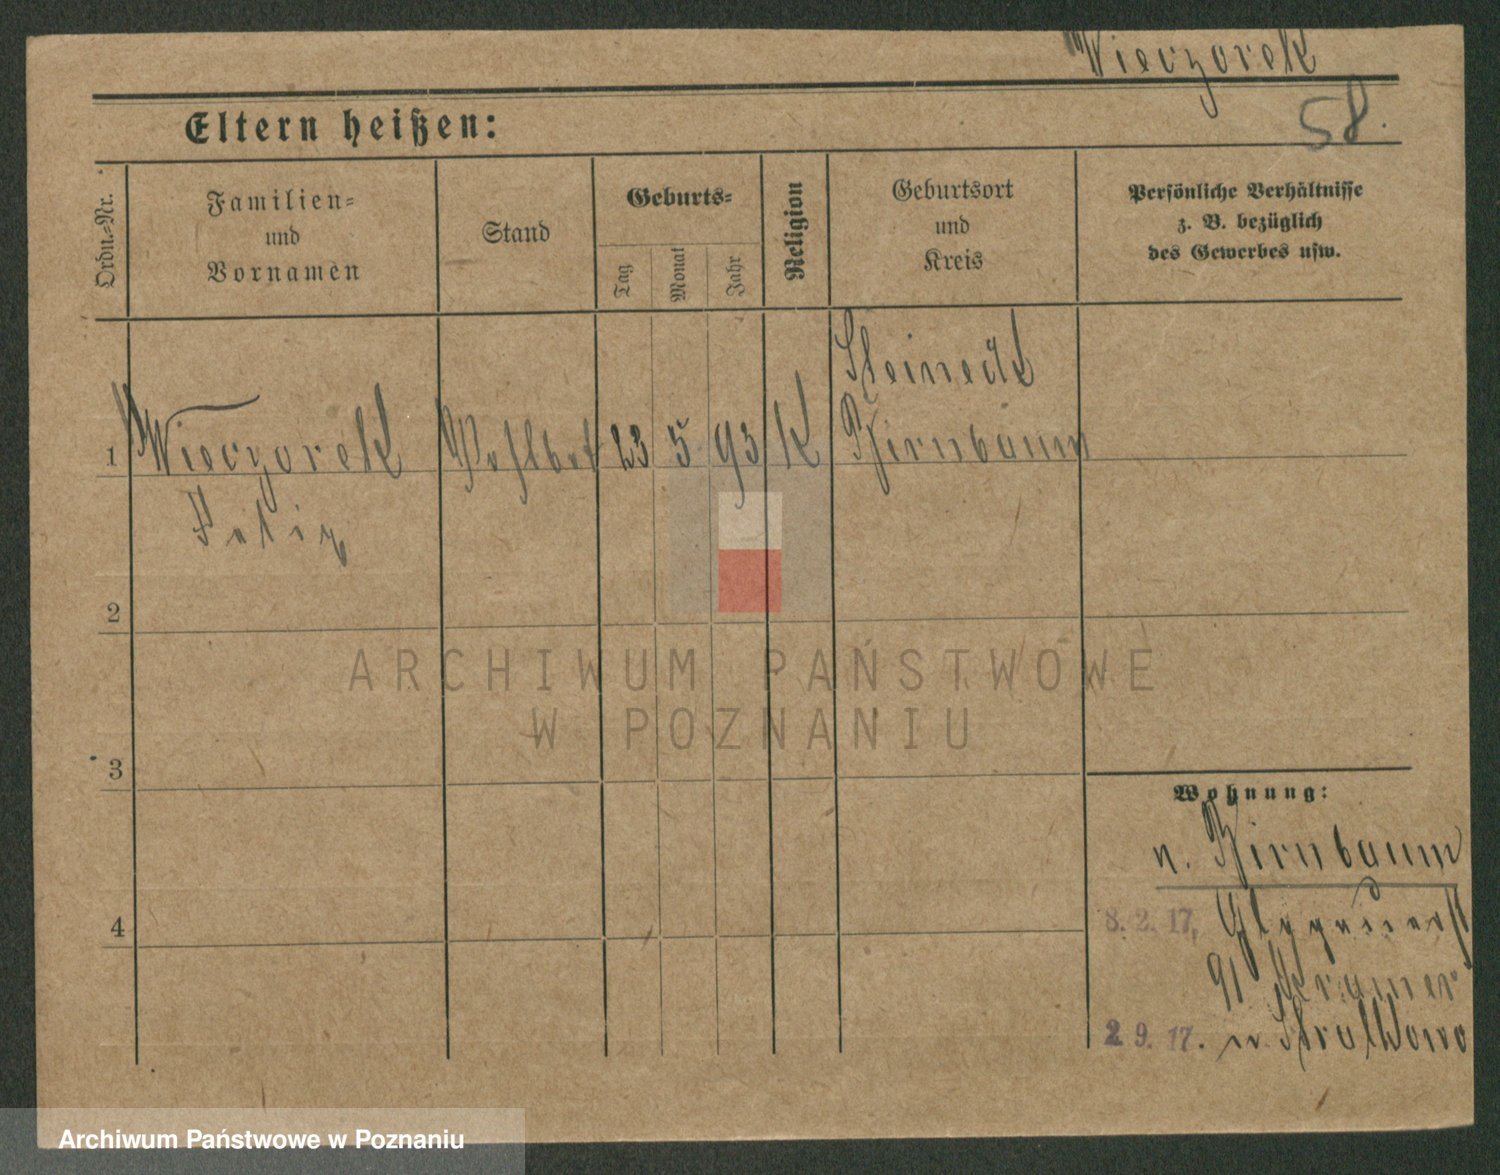 Wieczorek
58.
Eltern heißen:
Ordn.=Nr.
Familien=
und
Vornamen
Stand
Geburts=
Tag
Monat
Jahr
Religion
Geburtsort
und
Kreis
Persönliche Verhältnisse
z. B. bezüglich
des Gewerbes usw.
Steindl
1 Wieczorek 23 5 93 K Birnbaum
Feliz
2
3
4
ARCHIWUM PAŃSTWOWE
W POZNANIU
Wohnung:
n. Birnbaum
8. 2. 17.
91 Kramer
2 9. 17. n.
Archiwum Państwowe w Poznaniu